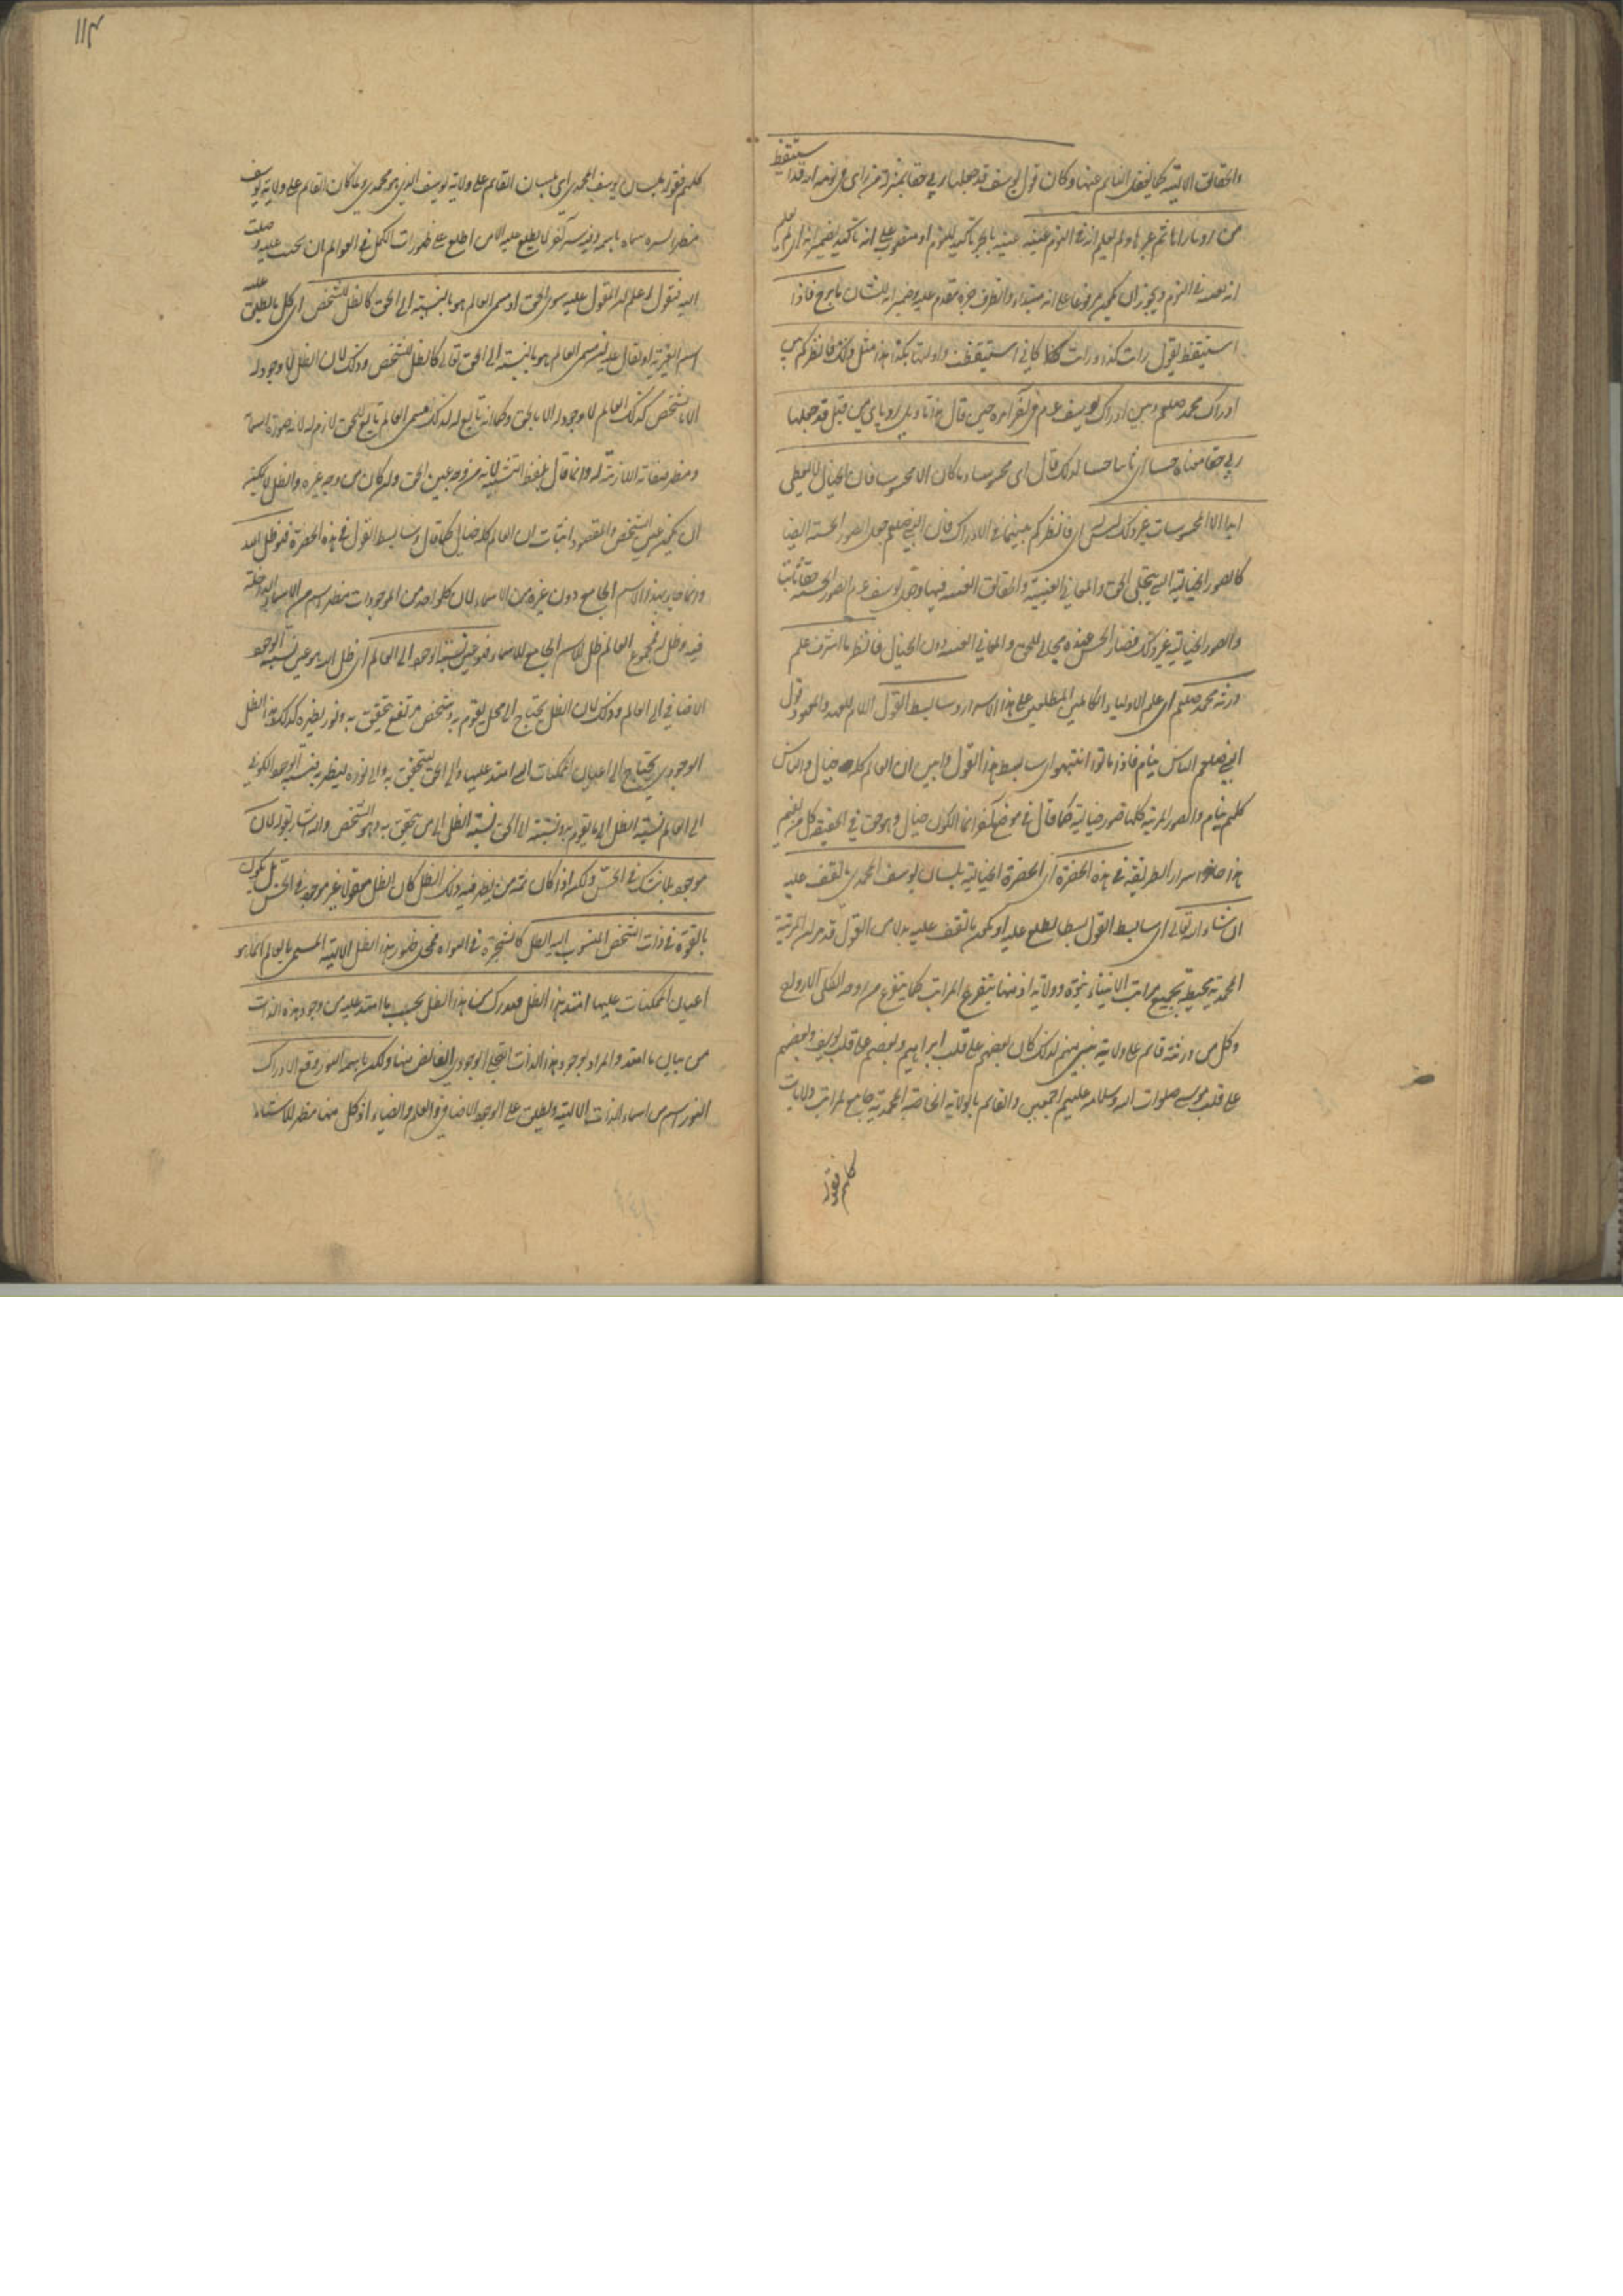 والحقائق الالهية كما يغفل النائم عنها وكان قول يوسف قد جعلها ربي حقا بمنزلة من راى في نومه انه قد استيقظ
من رويا راها ثم عبرها ولم يعلم انه في النوم عينه عينه بالجر تاكيد للنوم او منصوب على انه تاكيد لضمير انه اى لم يعلم
انه عينه في النوم ويجوز ان يكون مرفوعا على انه مبتداء والظرف خبره مقدم عليه وضمير انه للشان ما برح فاذا
استيقظ يقول رايت كذا ورايت كذا كاني استيقظت واولتها بكذا هذا مثل ذلك فانظر كم بين
ادراك محمد صلعم وبين ادراك يوسف عم في آخر امره حين قال هذا تاويل روياى من قبل قد جعلها
ربي حقا معناه حسا اى ثابتا حسا لذلك قال اى محسوسا وما كان الا محسوسا فان الخيال لا يعطي
ابدا الا المحسوسات غير ذلك ليس له اى فانظر كم بينهما في الادراك فان النبي صلعم جعل الصور الحسية ايضا
كالصور الخيالية التي يتجلى الحق والمعاني الغيبية والحقائق فيها وجعل يوسف عم الصور الحسية حقا ثابتا
والصور الخيالية غير ذلك فصار الحس عنده مجلى للحق والمعاني الغيبية دون الخيال فانظر ما اشرف علم
ورثة محمد صلعم اى علم الاولياء الكاملين المطلعين على هذا الاسرار وسابسط القول اللام للعهد والمعهود قول
النبي صلعم الناس نيام فاذا ماتوا انتبهوا اى سابسط هذا القول وابين ان العالم كله خيال والناس
كلهم نيام والصور المرئية كلها صور خيالية كما قال في موضع آخر انما الكون خيال وهو حق في الحقيقة كل من يفهم
هذا حاز اسرار الطريقة في هذه الحضرة اى الحضرة الخيالية بلسان يوسف المحمدي ما تقف عليه
ان شاء الله تعالى اى سابسط القول بسطا يطلع عليه او يكون ما تقف عليه بدلا من القول قد مر ان المرتبة
المحمدية محيطة بجميع مراتب الانبياء نبوة وولاية اذ منها يتفرع المراتب كما يتفرع من روحه الكلي الارواح
وكل من ورثته قائم على ولاية نبي منهم لذلك كان بعضهم على قلب ابراهيم وبعضهم على قلب يوسف وبعضهم
على قلب موسى صلوات الله وسلامه عليهم اجمعين والقائم بالولاية الخاصة المحمدية جامع لمراتب ولايات
كلهم فقوله
١١٤
كلهم فقوله بلسان يوسف المحمدى اى بلسان القائم على ولاية يوسف الذي هو محمدي ولما كان القائم على ولاية يوسف
مظهرا لسره سماه باسمه وفيه سر آخر لا يطلع عليه الا من اطلع على ظهورات الكمل في العوالم ان كنت عليه وصلت
اليه فنقول اعلم ان المقول عليه سوى الحق او مسمى العالم هو بالنسبة الى الحق كالظل للشخص اى كل ما يطلق عليه
اسم الغيرية او يقال عليه انه مسمى العالم هو بالنسبة الى الحق تعالى كالظل للشخص وذلك لان الظل لا وجود له
الا بالشخص كذلك العالم لا وجود له الا بالحق وكما انه تابع له كذلك مسمى العالم تابع للحق لازم له لانه صورة اسمائه
ومظهر صفاته اللازمة له وانما قال بلفظ التشبيه لانه من وجه عين الحق وان كان من وجه غيره والظل لا يمكن
ان يكون عين الشخص والمقصود اثبات ان العالم كله خيال كما قال وسابسط القول في هذه الحضرة فهو ظل الله
وانما جاء بهذا الاسم الجامع دون غيره من الاسماء لان كل واحد من الموجودات مظهر اسم من الاسماء الداخلة
فيه وظل له فمجموع العالم ظل الاسم الجامع للاسماء فهو عين نسبة الوجود الى العالم اى ظل الله هو عين نسبة الوجود
الاضافي الى العالم وذلك لان الظل يحتاج الى محل يقوم به وشخص مرتفع يتحقق به ونور يظهره كذلك هذا الظل
الوجودي يحتاج الى اعيان الممكنات التي امتد عليها والى الحق ليتحقق به والى نوره ليظهر به فنسبة الوجود الكوني
الى العالم نسبة الظل الى ما يقوم به ونسبته الى الحق نسبة الظل الى من يتحقق به وهو الشخص واليه اشار بقوله لان
موجود بلا شك في الحس ولكن اذا كان ثمة من يظهر فيه ذلك الظل كان الظل معقولا غير موجود في الحس بل يكون
بالقوة في ذات الشخص المنسوب اليه الظل كالشجرة في النواة فمحل ظهور هذا الظل الالهية المسمى بالعالم انما هو
اعيان الممكنات عليها امتد هذا الظل فيدرك من هذا الظل بحسب ما امتد عليه من وجود هذه الذات
من بيان ما امتد والمراد بوجود هذا الذات التجلي الوجودي الفائض منها ولكن باسمه النور وقع الادراك
النور اسم من اسماء الذات الالهية ويطلق على الوجود الاضافي والعلم والضياء اذ كل منها مظهر للاشياء